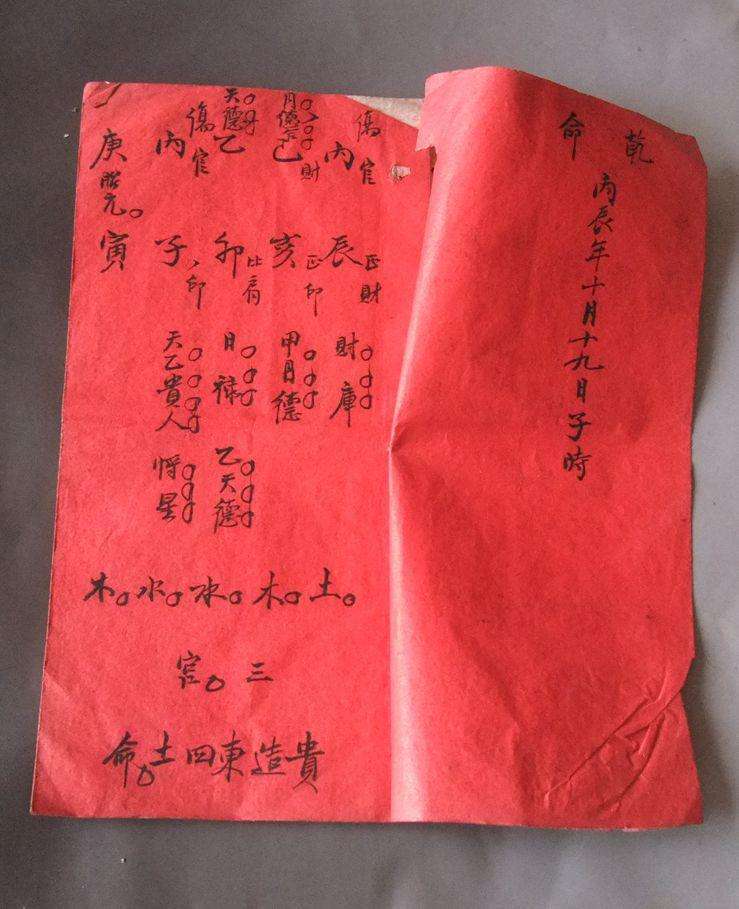 乾命
丙辰年十月十九日子時
傷官
丙
辰
正財
財庫
月德
財
己
亥
正印
甲月德
天德
乙
卯
比肩
日祿
乙天德
傷官
丙
子
印
天乙貴人
將星
庚
寅
土。木。水。水。木。
三
官。
貴造東四土命。